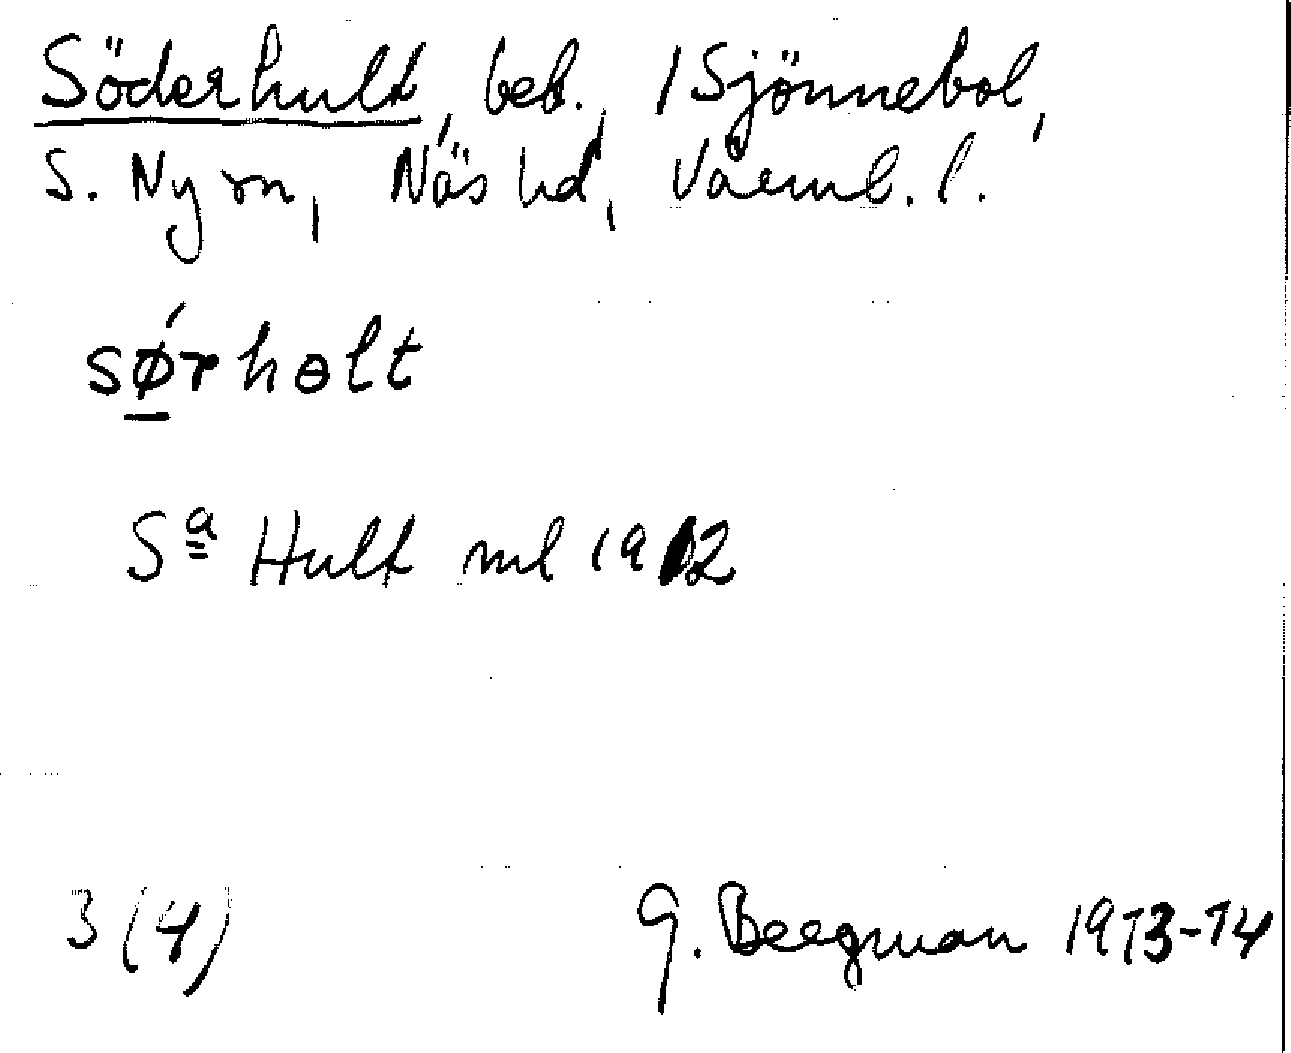 Söderhult, beb., 1 Sjönnebol,
S. Ny sn, Näs hd, Värml. l.
sǿ̲rhɵlt
Sª Hult ml 1912
3 (4)
G. Bergman 1973-74